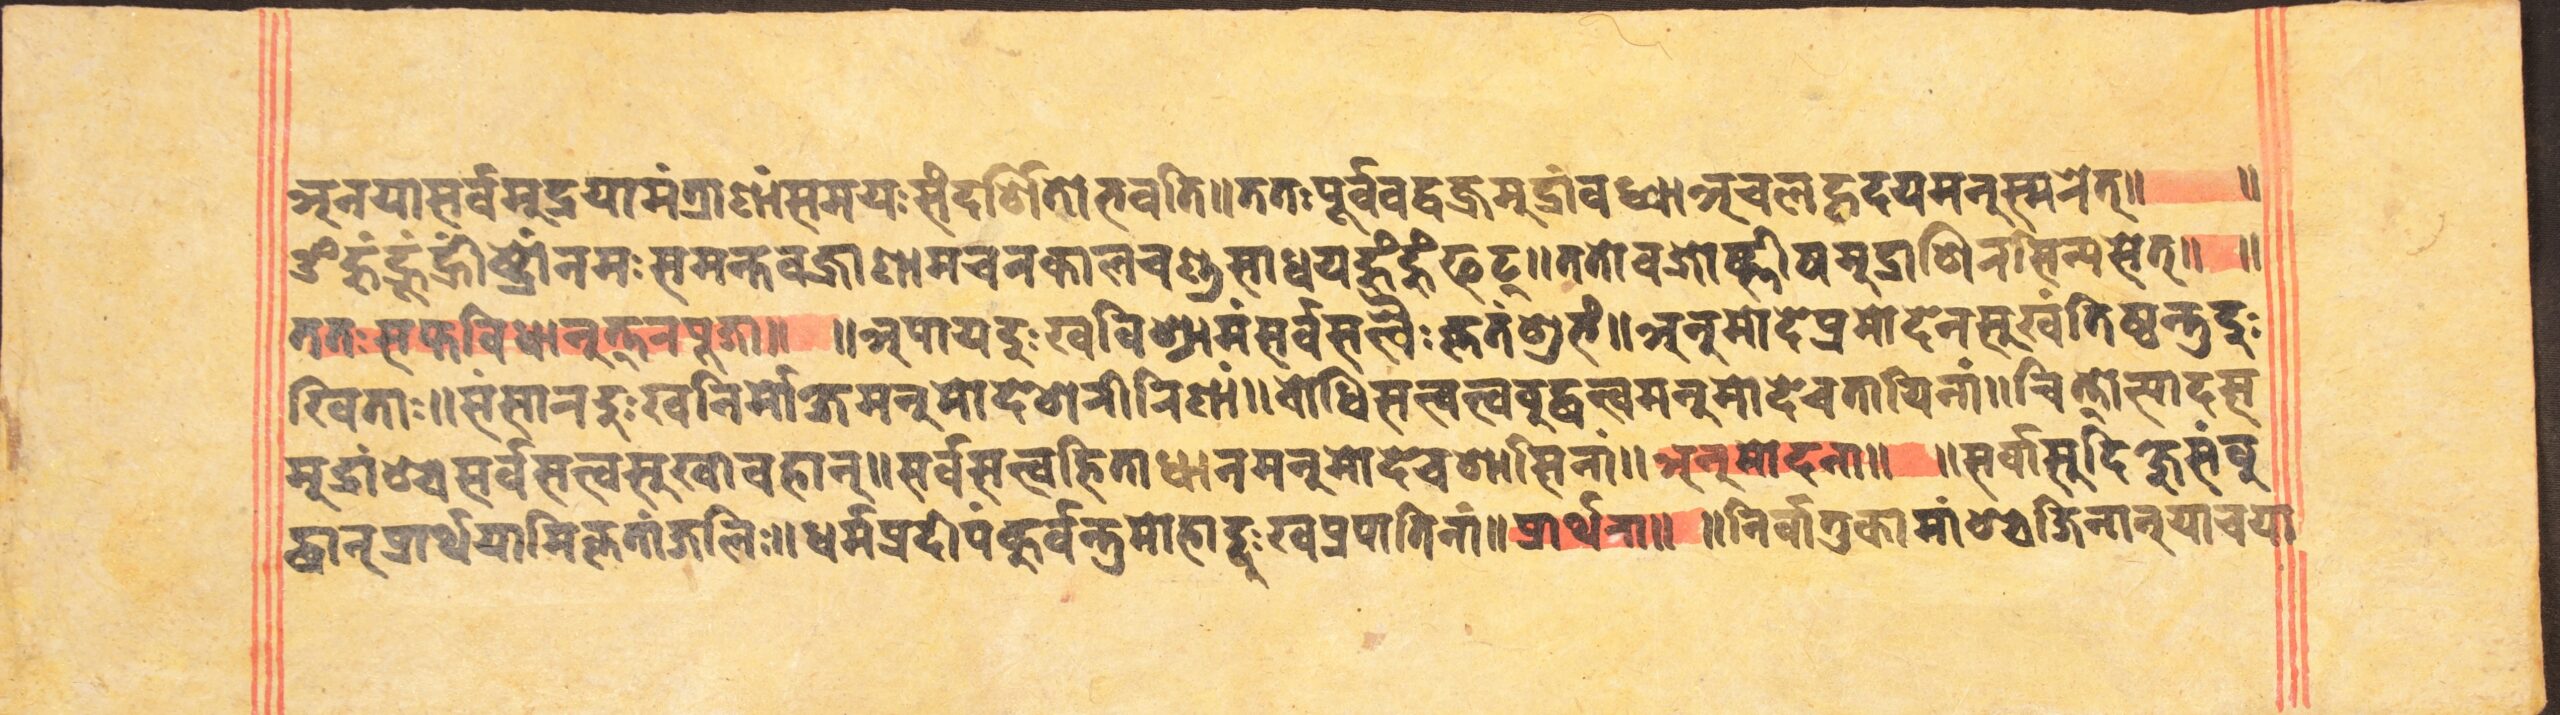 अनयासर्वमुद्रयामंत्राणांसमयःसंदर्शितोभवति॥ततःपूर्ववद्वज्रमुद्रांवध्वाअचलहृदयमनुस्मरेत्॥ ॥
नमःसमन्तवज्राणामचरकालचण्डसाधयहूंहूंफट्॥ततोवज्रोष्णीषमुद्राशिरसिन्यसेत्॥ ॥
ततःसप्तविधानुत्तरपूजा॥ ॥अपायदुःखविश्रामंसर्वसत्वैःकृतंशुभं॥अनुमोदेप्रमोदेनसुखंतिष्ठन्तुदुः
खिताः॥संसारदुःखनिर्मोक्षमनुमोदेशरीरिणां॥बोधिसत्वत्वबुद्धत्वमनुमोदेचतायिनां॥चित्तोत्पादस
मुद्रांश्चसर्वसत्वसुखावहान्॥सर्वसत्वहिताधानमनुमोदेचशासिनां॥अनुमोदना॥ ॥सर्वासुदिक्षुसंबु
द्धान्प्रार्थयामिकृतांजलिः॥धर्मप्रदीपंकुर्वन्तुमोहाद्दुःखप्रपातिनां॥प्रार्थना॥ ॥निर्वातुकामांश्चजिनान्याचया